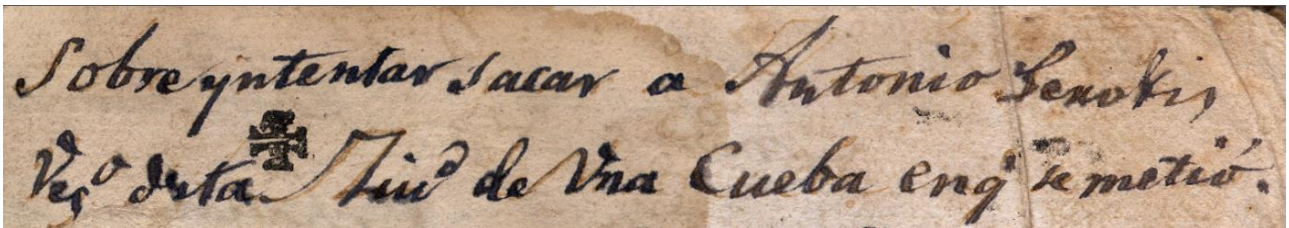 Sobre yntentar sacar a Antonio
Veçº desta Ziudᵈ de Vna Cueba en q̃ se metió.